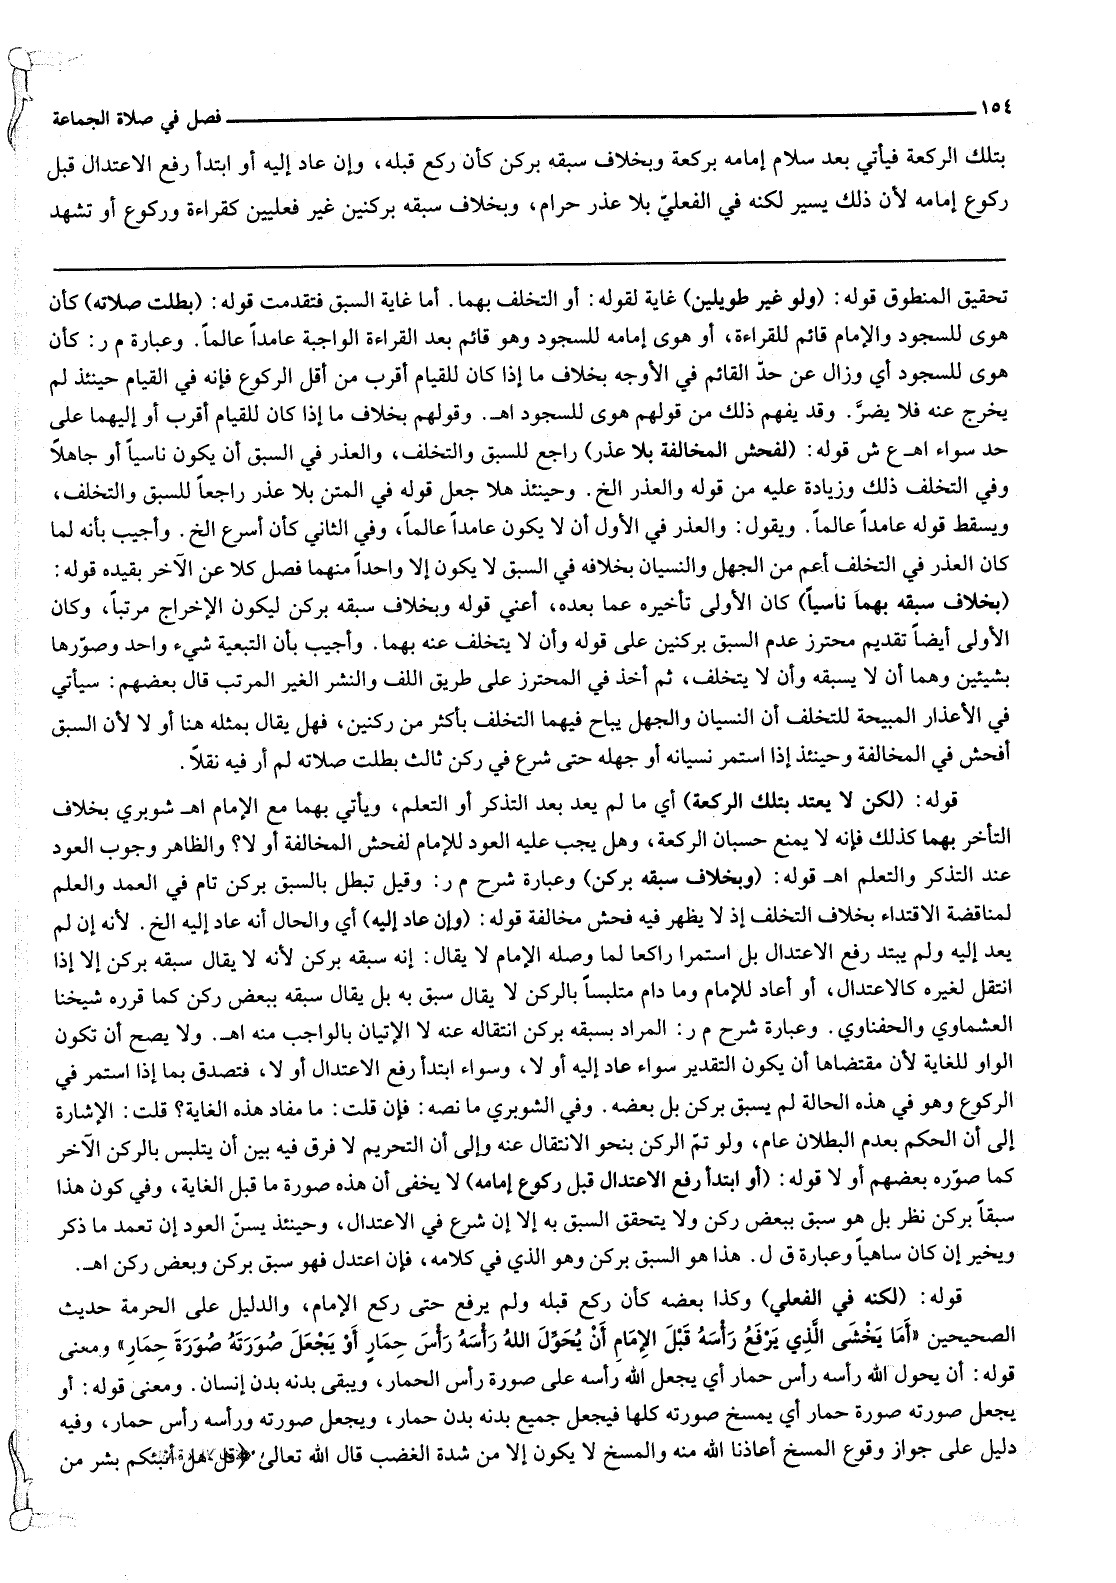 ١٥٤ فصل في صلاة الجماعة
بتلك الركعة فيأتي بعد سلام إمامه بركعة وبخلاف سبقه بركن كأن ركع قبله، وإن عاد إليه أو ابتدأ رفع الاعتدال قبل
ركوع إمامه لأن ذلك يسير لكنه في الفعليّ بلا عذر حرام، وبخلاف سبقه بركنين غير فعليين كقراءة وركوع أو تشهد
تحقيق المنطوق قوله: (ولو غير طويلين) غاية لقوله: أو التخلف بهما. أما غاية السبق فتقدمت قوله: (بطلت صلاته) كأن
هوى للسجود والإمام قائم للقراءة، أو هوى إمامه للسجود وهو قائم بعد القراءة الواجبة عامداً عالماً. وعبارة م ر: كأن
هوى للسجود أي وزال عن حدّ القائم في الأوجه بخلاف ما إذا كان للقيام أقرب من أقل الركوع فإنه في القيام حينئذ لم
يخرج عنه فلا يضرّ. وقد يفهم ذلك من قولهم هوى للسجود اهـ. وقولهم بخلاف ما إذا كان للقيام أقرب أو إليهما على
حد سواء اهـ ع ش قوله: (لفحش المخالفة بلا عذر) راجع للسبق والتخلف، والعذر في السبق أن يكون ناسياً أو جاهلاً
وفي التخلف ذلك وزيادة عليه من قوله والعذر الخ. وحينئذ هلا جعل قوله في المتن بلا عذر راجعاً للسبق والتخلف،
ويسقط قوله عامداً عالماً. ويقول: والعذر في الأول أن لا يكون عامداً عالماً، وفي الثاني كأن أسرع الخ. وأجيب بأنه لما
كان العذر في التخلف أعم من الجهل والنسيان بخلافه في السبق لا يكون إلا واحداً منهما فصل كلا عن الآخر بقيده قوله:
(بخلاف سبقه بهما ناسياً) كان الأولى تأخيره عما بعده، أعني قوله وبخلاف سبقه بركن ليكون الإخراج مرتباً، وكان
الأولى أيضاً تقديم محترز عدم السبق بركنين على قوله وأن لا يتخلف عنه بهما. وأجيب بأن التبعية شيء واحد وصوّرها
بشيئين وهما أن لا يسبقه وأن لا يتخلف، ثم أخذ في المحترز على طريق اللف والنشر الغير المرتب قال بعضهم: سيأتي
في الأعذار المبيحة للتخلف أن النسيان والجهل يباح فيهما التخلف بأكثر من ركنين، فهل يقال بمثله هنا أو لا لأن السبق
أفحش في المخالفة وحينئذ إذا استمر نسيانه أو جهله حتى شرع في ركن ثالث بطلت صلاته لم أر فيه نقلاً.
قوله: (لكن لا يعتد بتلك الركعة) أي ما لم يعد بعد التذكر أو التعلم، ويأتي بهما مع الإمام اهـ شوبري بخلاف
التأخر بهما كذلك فإنه لا يمنع حسبان الركعة، وهل يجب عليه العود للإمام لفحش المخالفة أو لا؟ والظاهر وجوب العود
عند التذكر والتعلم اهـ قوله: (وبخلاف سبقه بركن) وعبارة شرح م ر: وقيل تبطل بالسبق بركن تام في العمد والعلم
لمناقضة الاقتداء بخلاف التخلف إذ لا يظهر فيه فحش مخالفة قوله: (وإن عاد إليه) أي والحال أنه عاد إليه الخ. لأنه إن لم
يعد إليه ولم يبتد رفع الاعتدال بل استمرا راكعا لما وصله الإمام لا يقال: إنه سبقه بركن لأنه لا يقال سبقه بركن إلا إذا
انتقل لغيره كالاعتدال، أو أعاد للإمام وما دام متلبساً بالركن لا يقال سبق به بل يقال سبقه ببعض ركن كما قرره شيخنا
العشماوي والحفناوي. وعبارة شرح م ر: المراد بسبقه بركن انتقاله عنه لا الإتيان بالواجب منه اهـ. ولا يصح أن تكون
الواو للغاية لأن مقتضاها أن يكون التقدير سواء عاد إليه أو لا، وسواء ابتدأ رفع الاعتدال أو لا، فتصدق بما إذا استمر في
الركوع وهو في هذه الحالة لم يسبق بركن بل بعضه. وفي الشوبري ما نصه: فإن قلت: ما مفاد هذه الغاية؟ قلت: الإشارة
إلى أن الحكم بعدم البطلان عام، ولو تمّ الركن بنحو الانتقال عنه وإلى أن التحريم لا فرق فيه بين أن يتلبس بالركن الآخر
كما صوّره بعضهم أو لا قوله: (أو ابتدأ رفع الاعتدال قبل ركوع إمامه) لا يخفى أن هذه صورة ما قبل الغاية، وفي كون هذا
سبقاً بركن نظر بل هو سبق ببعض ركن ولا يتحقق السبق به إلا إن شرع في الاعتدال، وحينئذ يسنّ العود إن تعمد ما ذكر
ويخير إن كان ساهياً وعبارة ق ل. هذا هو السبق بركن وهو الذي في كلامه، فإن اعتدل فهو سبق بركن وبعض ركن اهـ.
قوله: (لكنه في الفعلي) وكذا بعضه كأن ركع قبله ولم يرفع حتى ركع الإمام، والدليل على الحرمة حديث
الصحيحين «أَمَا يَخْشَى الَّذِي يَرْفَعُ رَأْسَهُ قَبْلَ الإِمَامِ أَنْ يُحَوِّلَ اللهُ رَأْسَهُ رَأْسَ حِمَارٍ أَوْ يَجْعَلَ صُورَتَهُ صُورَةَ حِمَارِ» ومعنى
قوله: أن يحول الله رأسه رأس حمار أي يجعل الله رأسه على صورة رأس الحمار، ويبقى بدنه بدن إنسان. ومعنى قوله: أو
يجعل صورته صورة حمار أي يمسخ صورته كلها فيجعل جميع بدنه بدن حمار، ويجعل صورته ورأسه رأس حمار، وفيه
دليل على جواز وقوع المسخ أعاذنا الله منه والمسخ لا يكون إلا من شدة الغضب قال الله تعالى ﴿قل هل أنبئكم بشر من